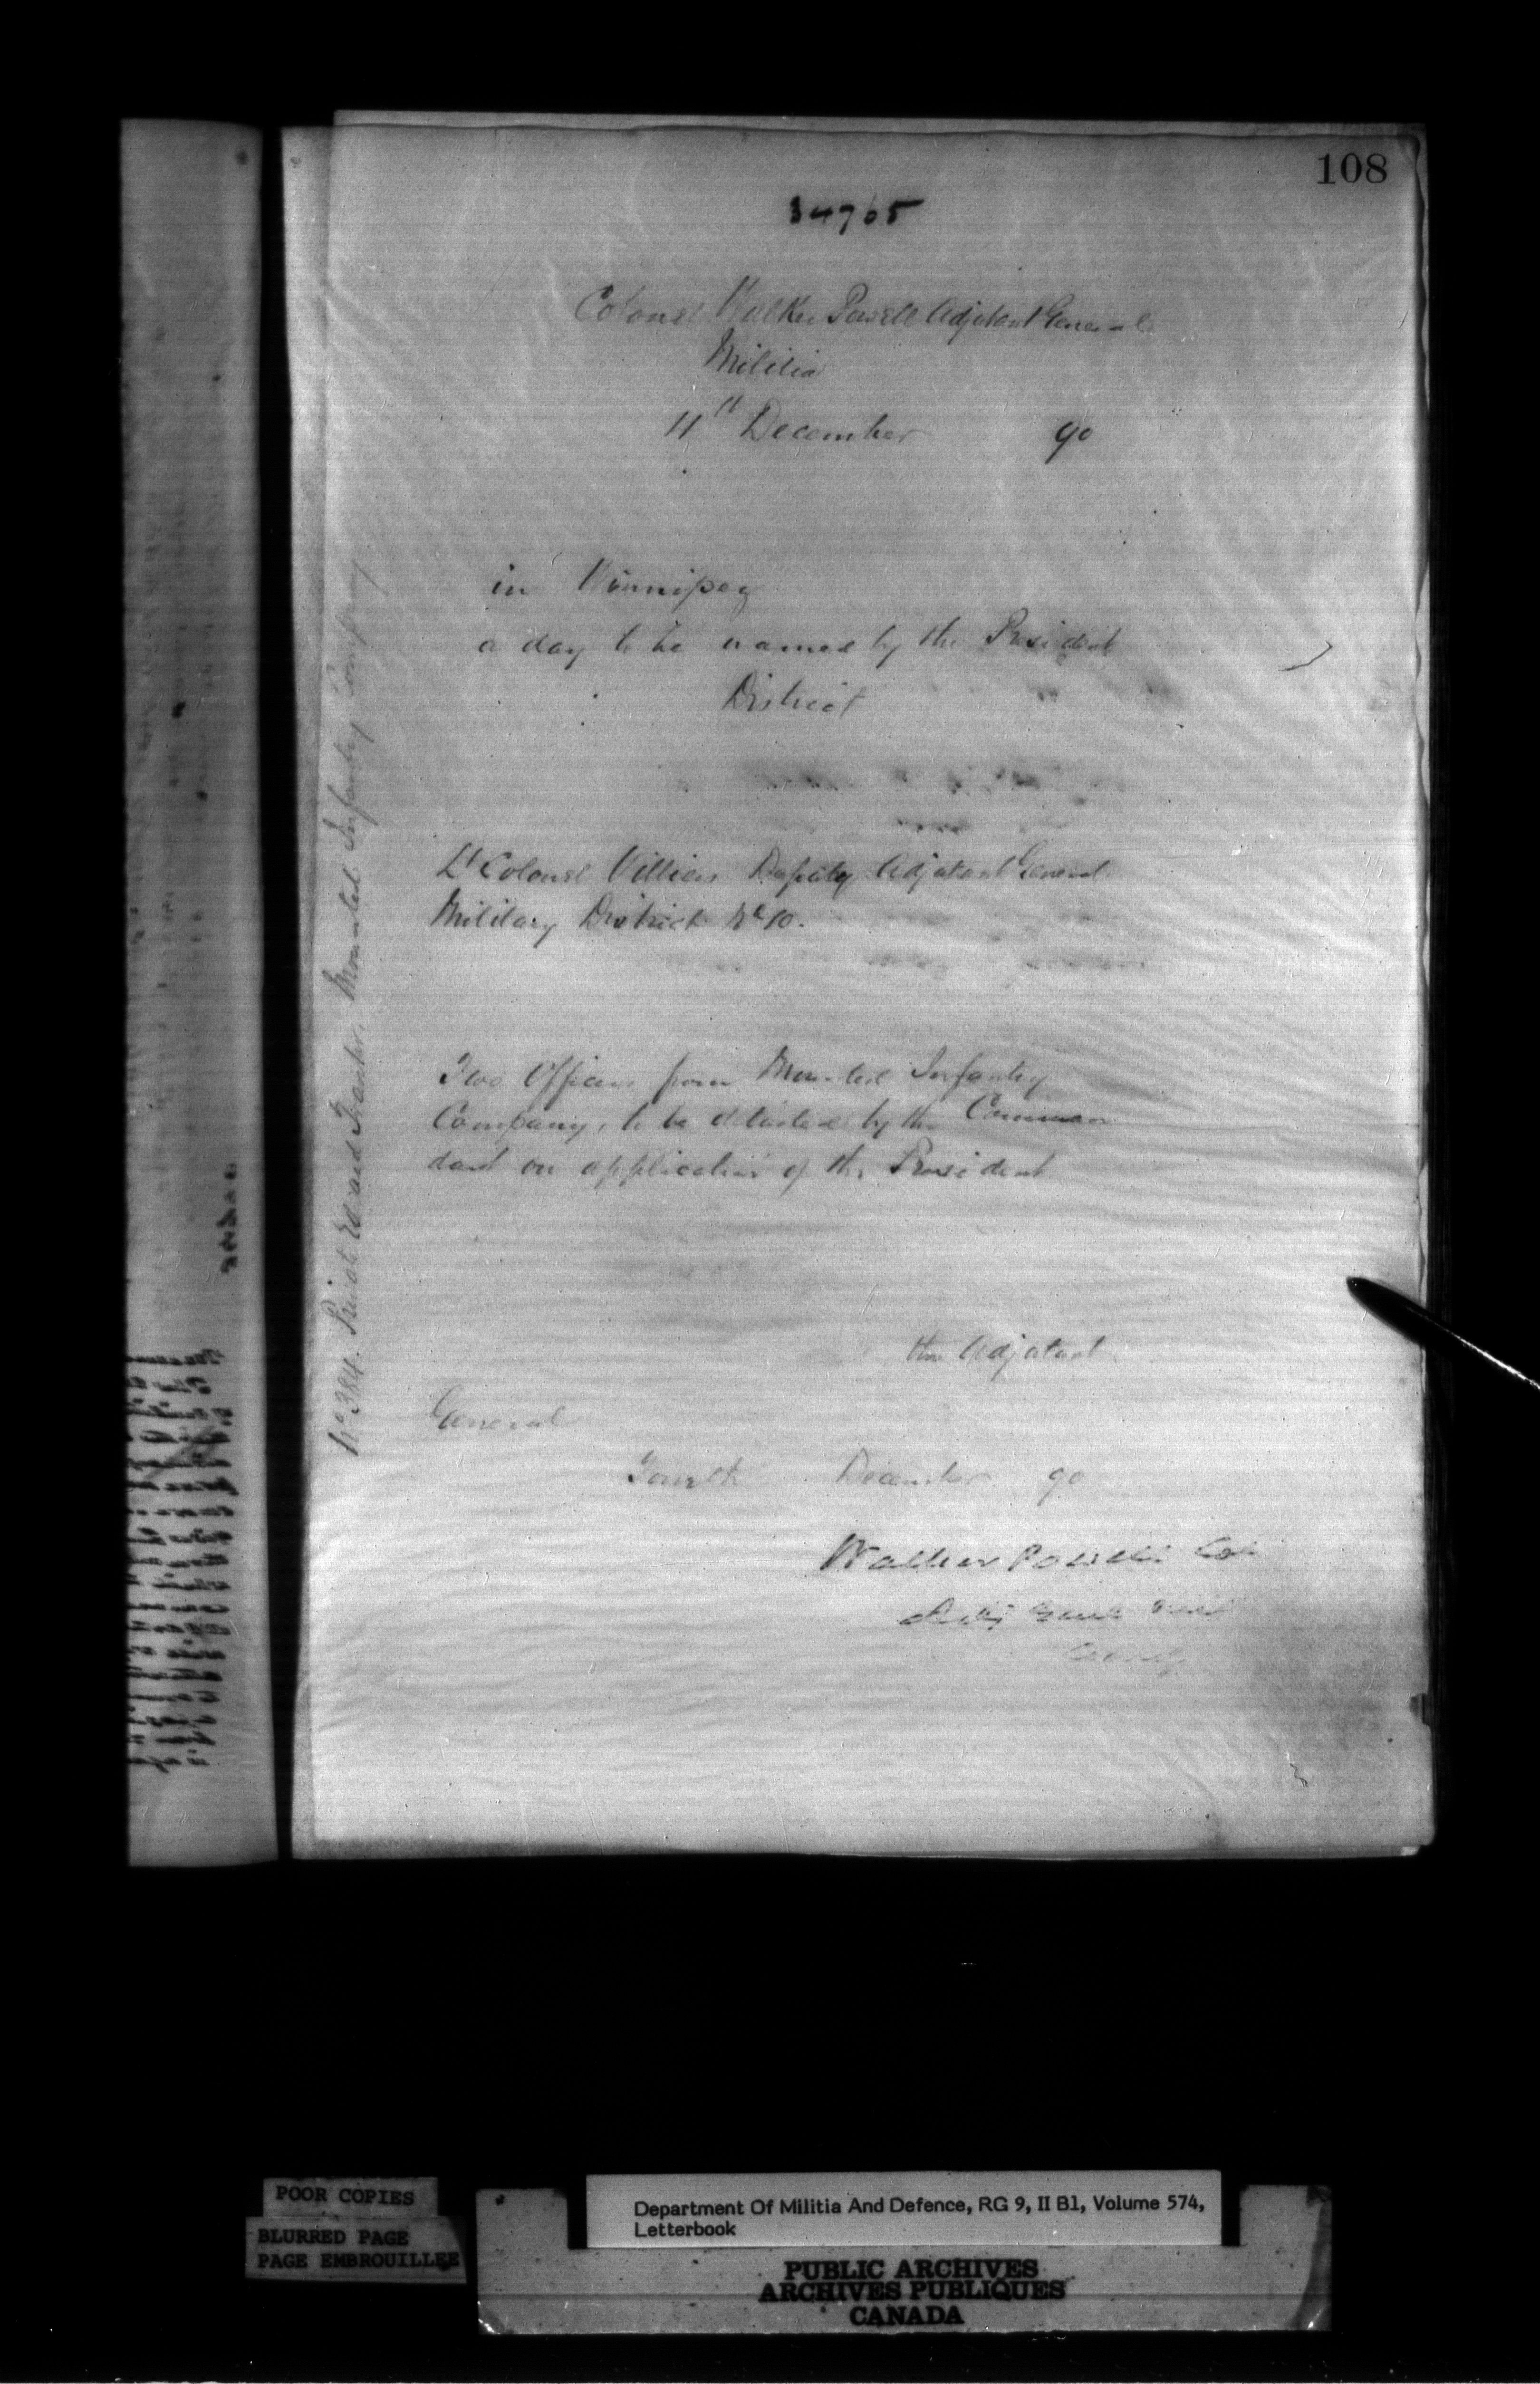 108
34765
Colonel Walker Powell Adjutant General
Militia
11th December 90
in Winnipeg
a day to be named by the President
District
Lt Colonel Villiers Deputy Adjutant General
Military District No 10.
Two Officers from Mounted Infantry
Company, to be detailed by the Comman
dant on application of the President
the Adjutant
General
Fourth December 90
Walker Powell Col
Adj Genl
Canada
No 384. Private Edward Mounted Infantry Company
POOR COPIES
BLURRED PAGE
PAGE EMBROUILLEE
Department Of Militia And Defence, RG 9, II B1, Volume 574,
Letterbook
PUBLIC ARCHIVES
ARCHIVES PUBLIQUES
CANADA